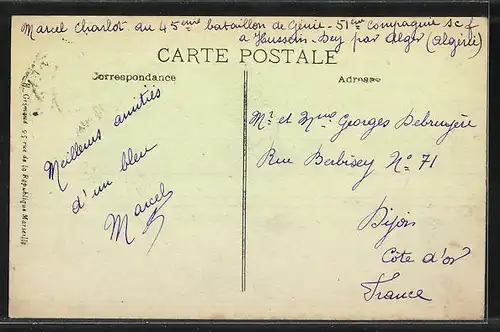 Marcel Charlot au 45ème bataillon de Génie - 51ème compagnie sc f
a Hussein-Dey par Alger (Algérie)
CARTE POSTALE
Correspondance
Adresse
Meilleures amitiés
d'un bleu
Marcel
Mr et Mme Georges Debruyère
Rue Berbisey No 71
Dijon
Côte d'or
France
Grimaud 95 rue de la République Marseille